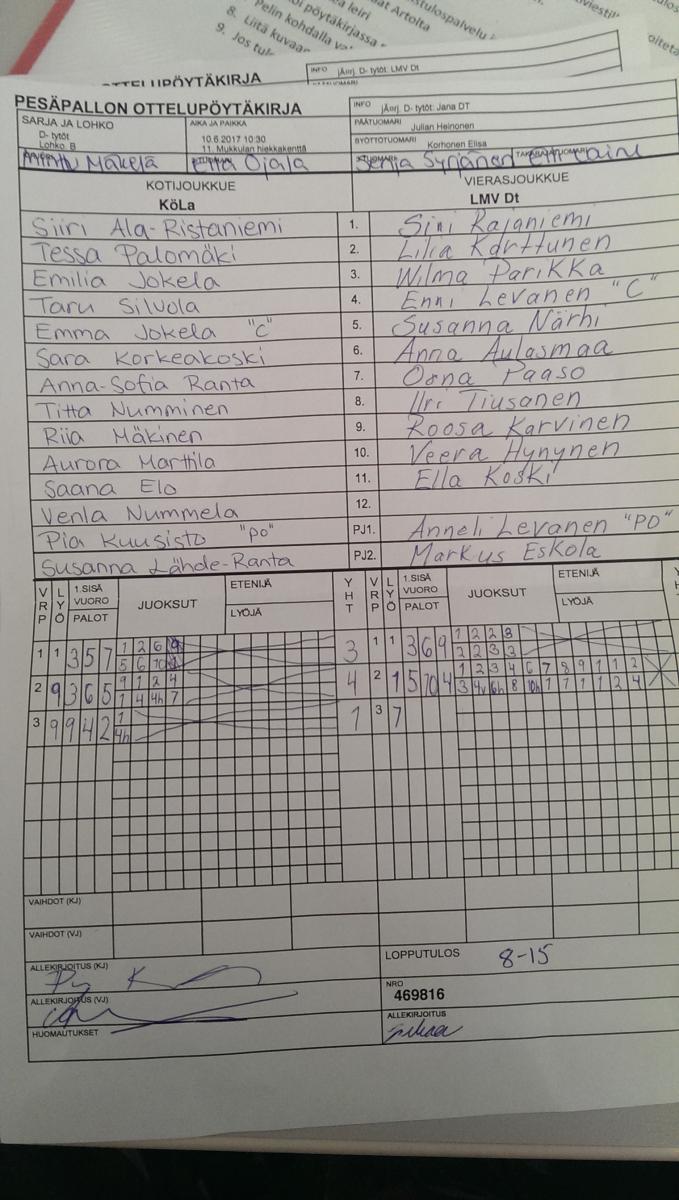 a leiri
oi pöytäkirjassa
at Artolta
Pelin kohdalla
8. Liitä kuvaan
9. Jos
tulospalvelu
INFO jÄorj. D- tytöt: LMV Dt
OTTELUPÖYTÄKIRJA
PESÄPALLON OTTELUPÖYTÄKIRJA
INFO jÄorj. D- tytöt: Jana DT
SARJA JA LOHKO
D- tytöt
Lohko. B
AIKA JA PAIKKA
10.6.2017 10:30
11. Mukkulan hiekkakenttä
PÄÄTUOMARI Julian Heinonen
SYÖTTÖTUOMARI Korhonen Elisa
Minttu Mäkelä Etta Ojala Senja Syrjänen
KOTIJOUKKUE
KöLa
VIERASJOUKKUE
LMV Dt
Siiri Ala-Ristaniemi 1. Sini Rajaniemi
Tessa Palomäki 2. Lilia Karttunen
Emilia Jokela 3. Wilma Parikka
Taru Silvola 4. Enni Levanen "C"
Emma Jokela "C" 5. Susanna Närhi
Sara Korkeakoski 6. Anna Aulasmaa
Anna-Sofia Ranta 7. Oona Paaso
Titta Numminen 8. Tiusanen
Riia Mäkinen 9. Roosa Karvinen
Aurora Marttila 10. Veera Hynynen
Saana Elo 11. Ella Koski
Venla Nummela 12.
Pia Kuusisto "PO" PJ1. Anneli Levanen "PO"
Susanna Lähde-Ranta PJ2. Markus Eskola
VRP LYÖ 1.SISÄ VUORO PALOT JUOKSUT ETENIJÄ LYÖJÄ YHT VRP LYÖ 1.SISÄ VUORO PALOT JUOKSUT ETENIJÄ LYÖJÄ
1 1 3 5 7 1 2 6 3 1 1 3 6 9 1 2 2 3
5 6 2 2 3 3
2 9 3 6 5 9 1 2 4 4 2 1 5 10 4 1 2 3 4 6 7 8 9 1 1 2
1 4 4h 7 3 4v 6h 8 10h 1 1 1 1 2 4
3 9 9 4 2 1 1 3 7
4h
VAIHDOT (KJ)
VAIHDOT (VJ)
ALLEKIRJOITUS (KJ)
LOPPUTULOS 8-15
ALLEKIRJOITUS (VJ)
NRO
469816
HUOMAUTUKSET
ALLEKIRJOITUS